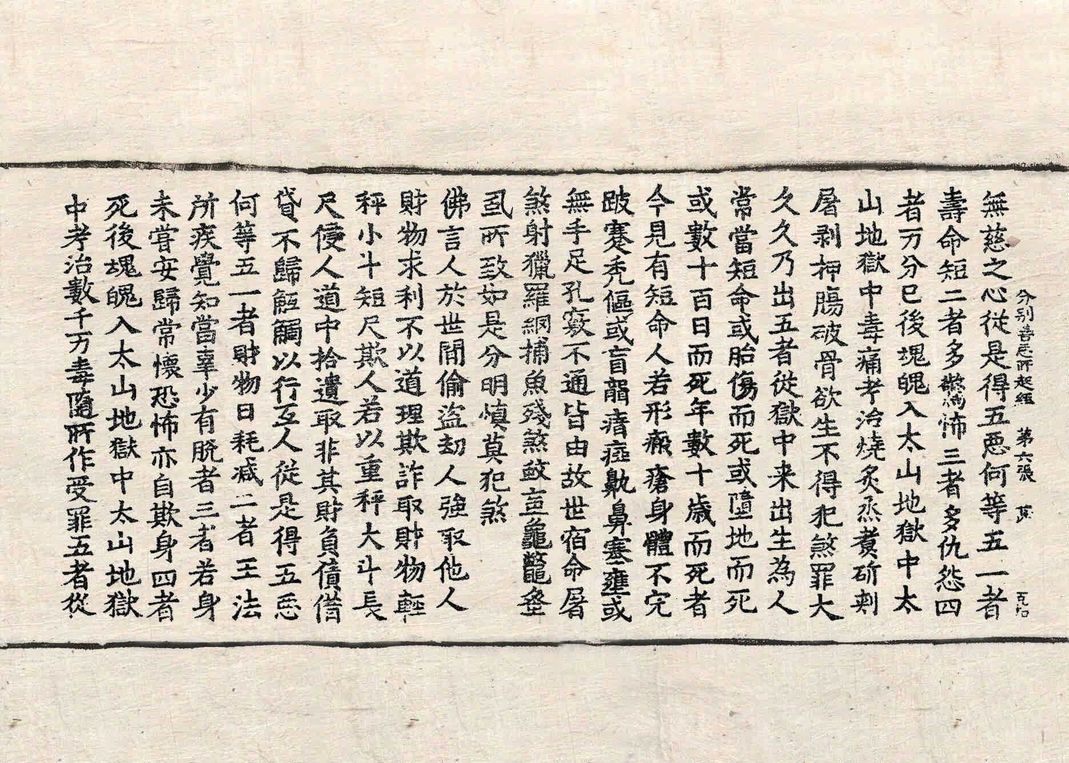 分别善惡所起經 第六張
無慈之心從是得五惡何等五一者
壽命短二者多驚怖三者多仇怨四
者万分已後魂魄入太山地獄中太
山地獄中毒痛考治燒炙烝煑斫刺
屠剥押腸破骨欲生不得犯煞罪大
久久乃出五者從獄中来出生為人
常當短命或胎傷而死或墮地而死
或數十百日而死年數十歲而死者
今見有短命人若形瘢瘡身體不完
跛蹇秃傴或盲聾瘖瘂鼽鼻塞壅或
無手足孔竅不通皆由故世宿命屠
煞射獵羅網捕魚殘煞蚊䖟龜鼈蚤
虱所致如是分明慎莫犯煞
佛言人於世間偷盗劫人強取他人
財物求利不以道理欺詐取財物輕
秤小斗短尺欺人若以重秤大斗長
尺侵人道中拾遺取非其財負債借
貸不歸觝觸以行互人從是得五惡
何等五一者財物日耗减二者王法
所疾覺知當辜少有脱者三者若身
未甞安歸常懷恐怖亦自欺身四者
死後魂魄入太山地獄中太山地獄
中考治數千万毒随所作受罪五者從